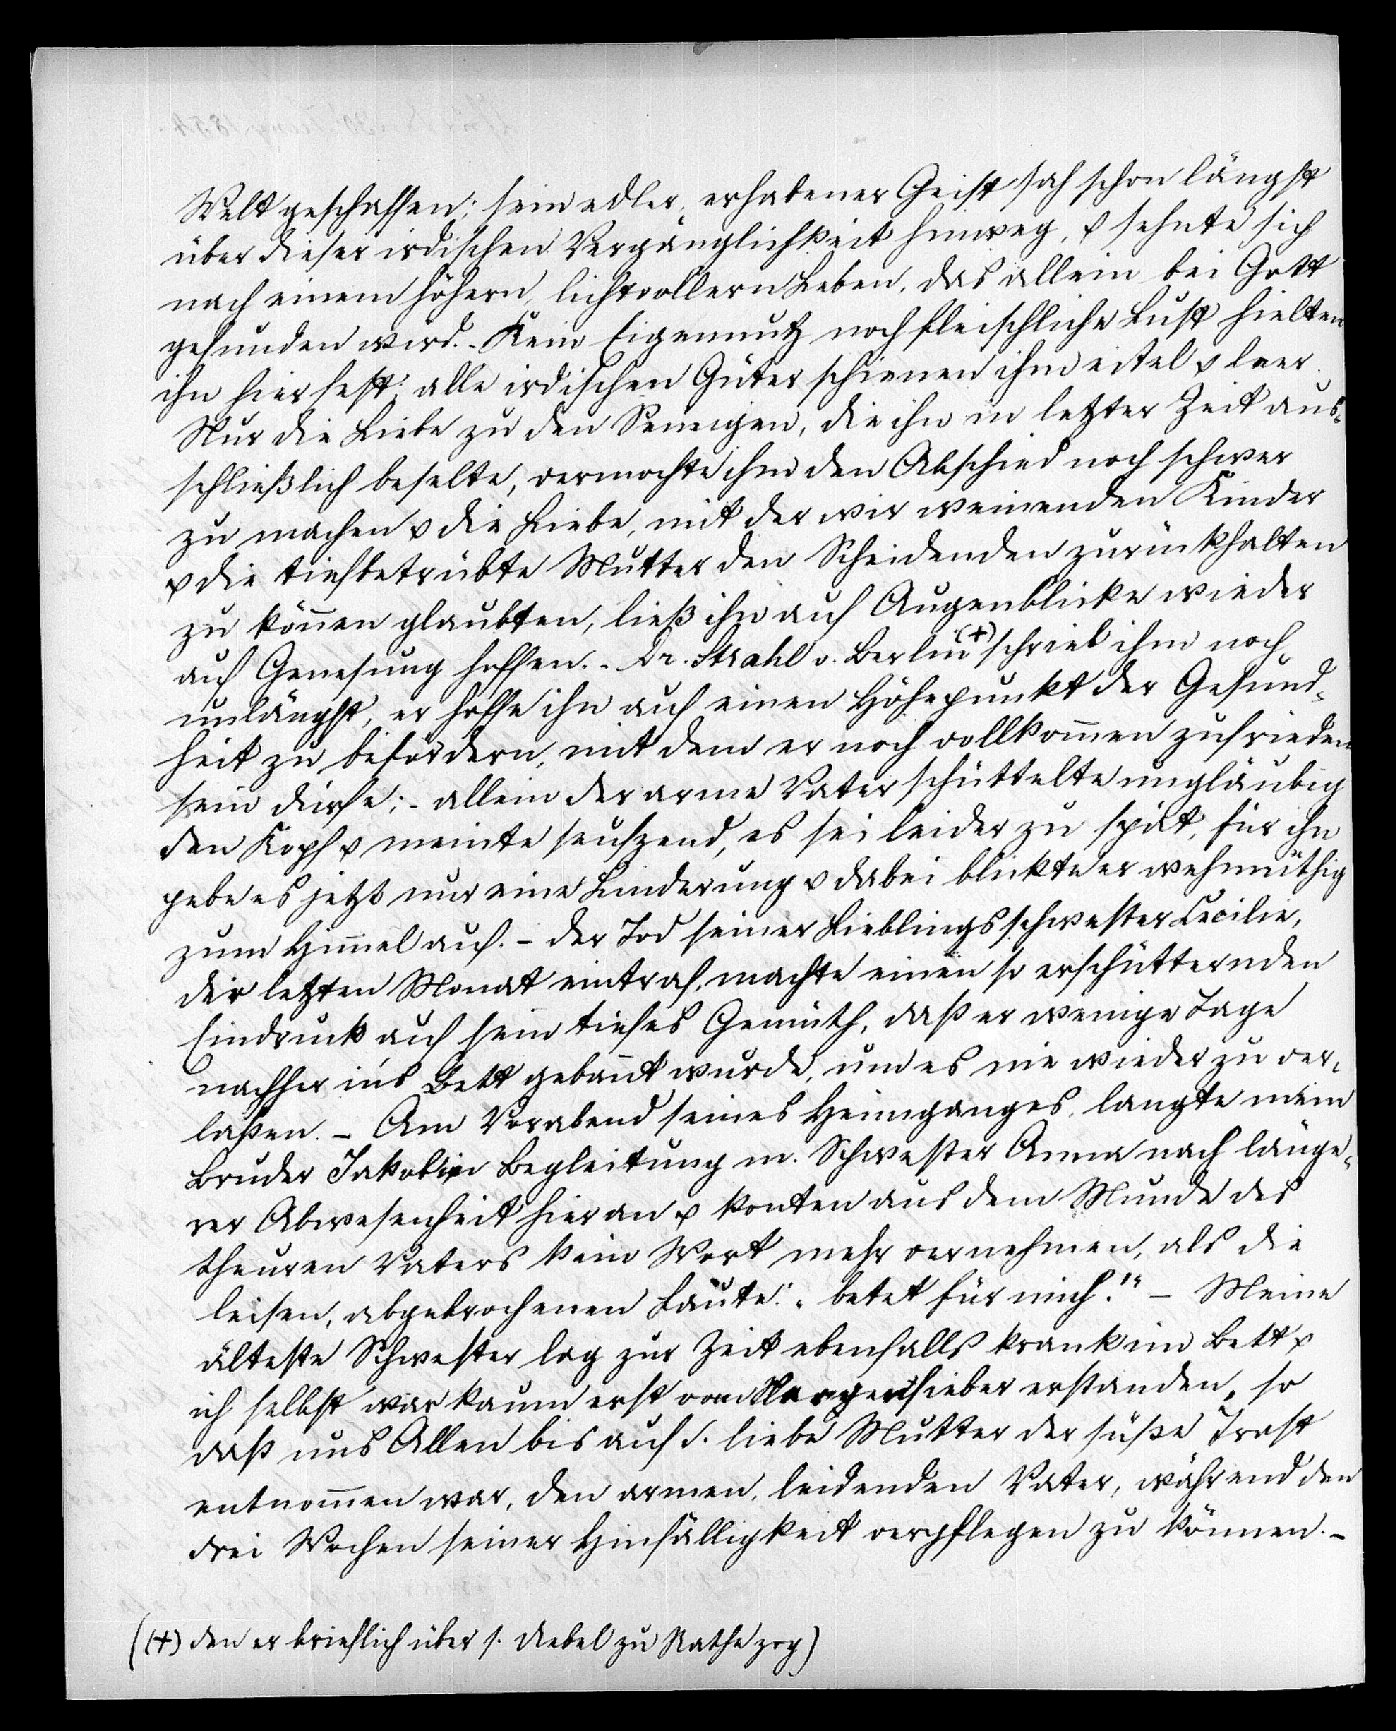 Welt geschaffen; sein edler, erhabener Geist sah schon längst
über dieser irdischen Vergänglichkeit hinweg, & sehnte sich
nach einem höhern, lichtvollern Leben, das allein bei Gott
gefunden wird. - Kein Eigennutz noch fleischliche Lust hielten
ihn hier fest; alle irdischen Güter schienen ihm eitel & leer.
Nur die Liebe zu den Seinigen, die ihn in letzter Zeit aus-
schließlich beselte, vermochte ihm den Abschied noch schwer
zu machen & die Liebe, mit der wir weinenden Kinder
& die tiefbetrübte Mutter den Scheidenden zurückhalten
zu können glaubten, ließ ihn auf Augenblicke wieder
auf Genesung hoffen. - Dr. Strahl v. Berlin (+) schrieb ihm noch
unlängst, er hoffe ihn auf einen Höhepunkt der Gesund-
heit zu befördern, mit dem er noch vollkom̅en zufrieden
sein dürfe; - allein der arme Vater schüttelte ungläubig
den Kopf & meinte seufzend, es sei leider zu spät, für ihn
gebe es jetzt nur eine Linderung & dabei blickte er wehmüthig
zum Him̅el auf. - Der Tod seiner Lieblingsschwester Cecilie,
der letzten Monat eintraf, machte einen so erschütternden
Eindruck auf sein tiefes Gemüth, daß er wenige Tage
nachher in's Bett geban̅t wurde, um es nie wieder zu ver-
laßen. - Am Vorabend seines Heimganges langte mein
Bruder Jakob in Begleitung m. Schwester Anna nach länge-
rer Abwesenheit hier an & konten aus dem Munde des
theuren Vaters kein Wort mehr vernehmen, als die
leisen, abgebrochenen Laute: „betet für mich!" - Meine
älteste Schwester lag zur Zeit ebenfalls krank im Bett &
ich selbst war kaum erst vom Nervenfieber erstanden, so
daß uns Allen bis auf d. liebe Mutter der süße Trost
entnom̅en war, den armen, leidenden Vater, während den
drei Wochen seiner Hinfälligkeit verpflegen zu können. -
((+) den er brieflich über s. Uebel zu Rathe zog)